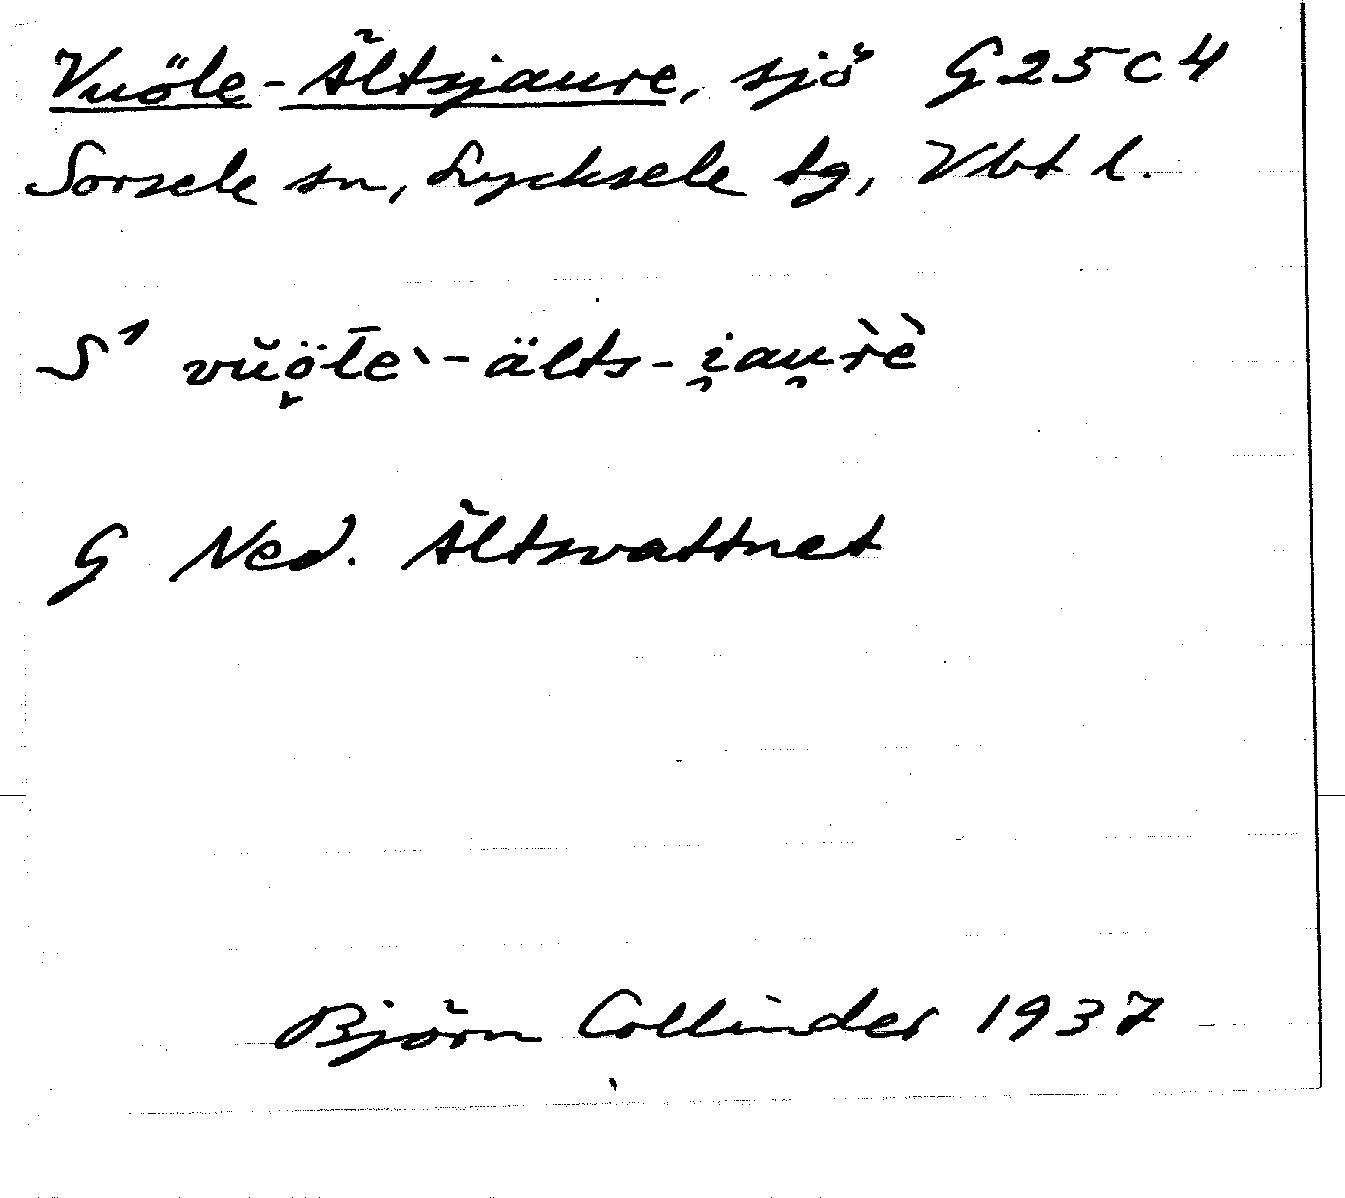 Vuöle-Ältsjaure, sjö G25C4
Sorsele sn, Lycksele tg, Vbt l.
S¹ vŭö̬l̄eˋ-älts-i̯au̯r̀è
G Ned. Ältsvattnet
Björn Collinder 1937